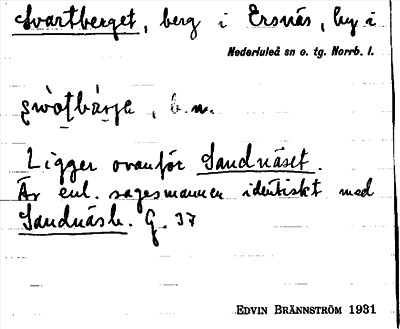 Svartberget, berg i Ersnäs, by i
Nederluleå sn o. tg. Norrb. l.
b. n.
Ligger ovanför Sandnäset.
Är enl. sagesmannen identiskt med
Sandnäsb. G. 37
EDVIN BRÄNNSTRÖM 1931